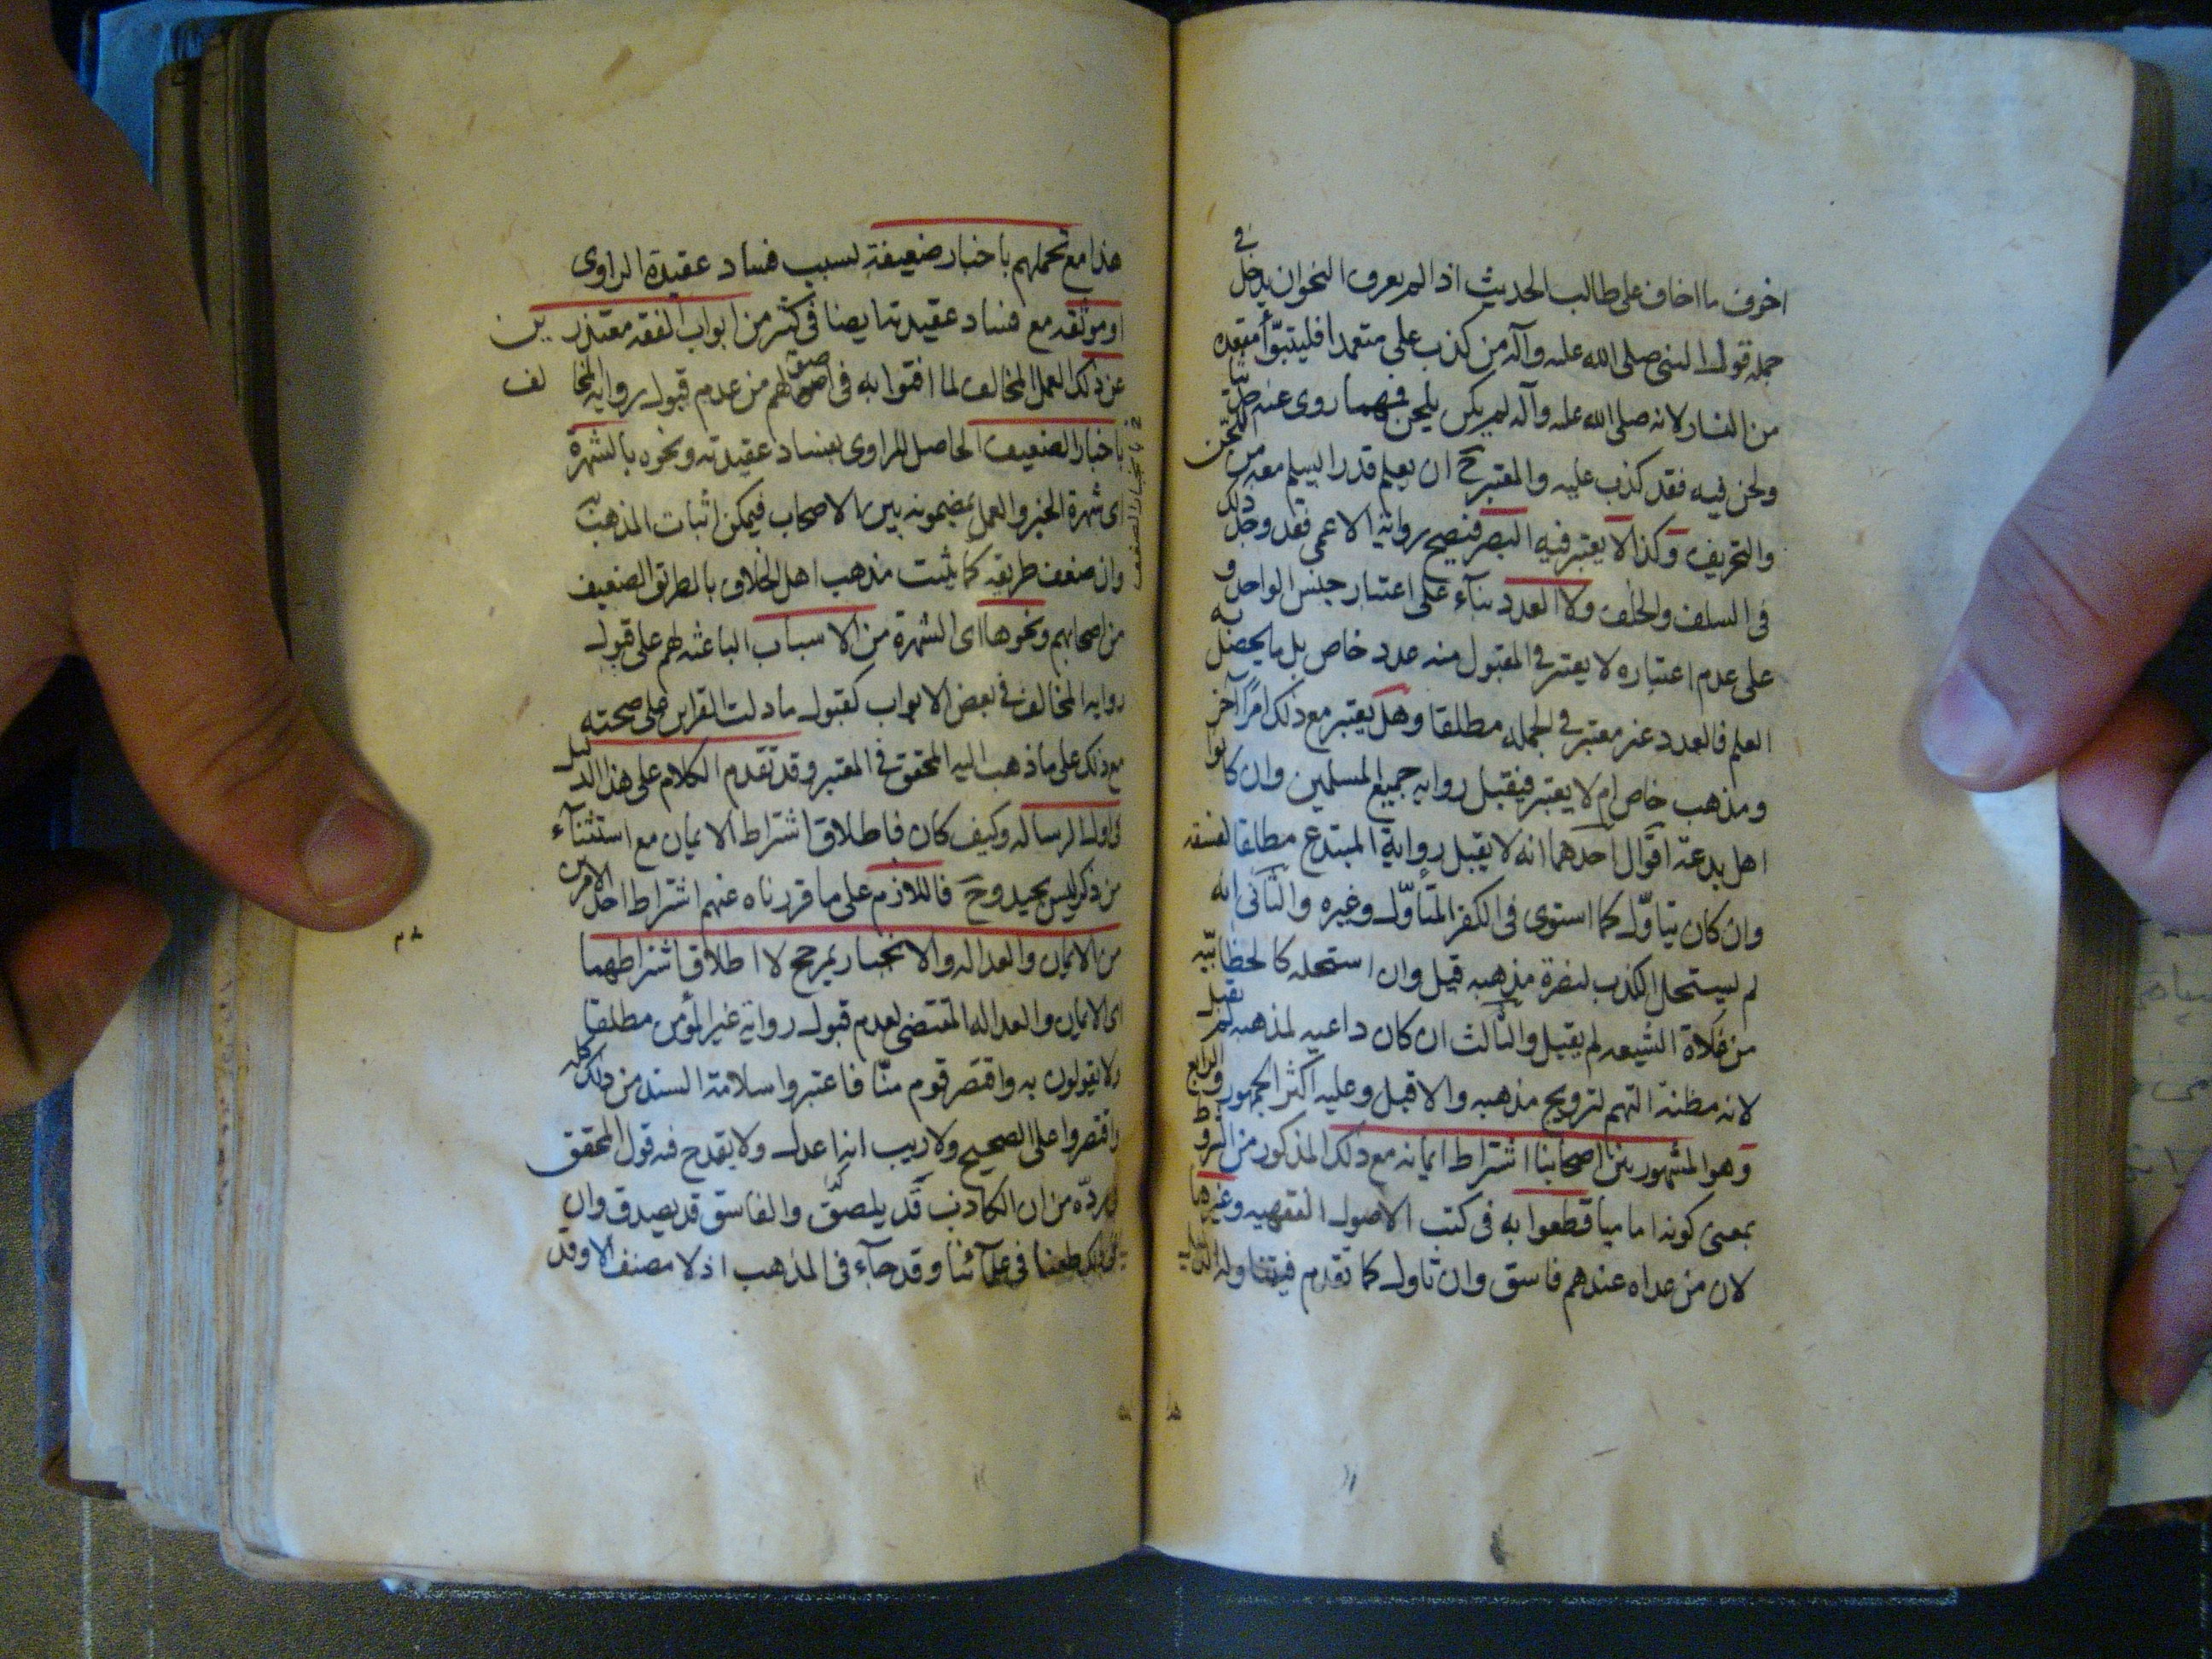 اخوف ما اخاف على طالب الحديث اذا لم يعرف النحو ان يدخل في
جمله قول النبى صلى الله عليه وآله من كذب على متعمدا فليتبوّأ مقعده
من النار لانه صلى الله عليه وآله لم يكن يلحن فمهما روى عنه حديثا
ولحن فيه فقد كذب عليه والمعتبر ح ان يعلم قدرا يسلم معه من اللحن
والتحريف وكذا لا يعتبر فيه البصر فتصح رواية الاعمى فقد وجد ذلك
فى السلف والخلف ولا العدد بناء على اعتبار خبر الواحد و
على عدم اعتباره لا يعتبر في المقبول منه عدد خاص بل ما يحصل به
العلم فالعدد غير معتبر في الجمله مطلقا وهل يعتبر مع ذلك امرًا آخر
ومذهب خاص ام لا يعتبر فيقبل روايه جميع المسلمين وان كانوا
اهل بدعة اقوال احدهما انه لا يقبل رواية المبتدع مطلقا لفسقه
وان كان يتاوّل كما استوى فى الكفر المتأوّل وغيره والثانى انه
لم يستحل الكذب لنصرة مذهبه قبل وان استحله كالخطابيه
من غلاة الشيعه لم يقبل والثالث ان كان داعيه لمذهبه لم يقبل
لانه مظنة التهم لترويج مذهبه والا قبل وعليه اكثر الجمهور والرابع
وهو المشهور بين اصحابنا اشتراط ايمانه مع ذلك المذكور من الشروط
بمعنى كونه اماميا قطعوا به فى كتب الاصول الفقهيه وغيرها
لان من عداه عندهم فاسق وان تاول كما تقدم فيتناوله
هذا مع تحملهم باخبار ضعيفة بسبب فساد عقيدة الراوى
او موثقه مع فساد عقيدته ايضا فى كثر من ابواب الفقه معتذرين
عن ذلك العمل المخالف لما افتوا به فى اصولهم من عدم قبول روايه المخالف
باخبار الضعيف الحاصل للراوى بفساد عقيدته ونحوه بالشهرة
اى شهرة الخبر والعمل بمضمونه بين الاصحاب فيمكن اثبات المذهب
وان ضعف طريقه كما يثبت مذهب اهل الخلاف بالطريق الضعيف
من اصحابهم ونحوها اى الشهرة من الاسباب الباعثه لهم على قبول
روايه المخالف في بعض الابواب كقبول ما دلت القراين على صحته
مع ذلك على ما ذهب اليه المحقق في المعتبر وقد تقدم الكلام على هذا الدليل
فى اول الرساله وكيف كان فاطلاق اشتراط الايمان مع استثناء
من ذكر ليس بجيد وح فاللازم على ما قررناه عنهم اشتراط احد الامرين
من الايمان والعداله والانجبار بمرجح لا اطلاق اشتراطهما
اى الايمان والعداله المقتضى لعدم قبول رواية غير المؤمن مطلقا
ولا يقولون به واقتصر قوم منّا فاعتبروا سلامة السند من ذلك كله
واقتصروا على الصحيح ولا ريب انه اعدل ولا يقدح فيه قول المحقق
فى ردّه من ان الكاذب قد يلصق والفاسق قد يصدق وان
فى ذلك طعنا فى علمآئنا وقدحآء فى المذهب اذ لا مصنف الا وقد